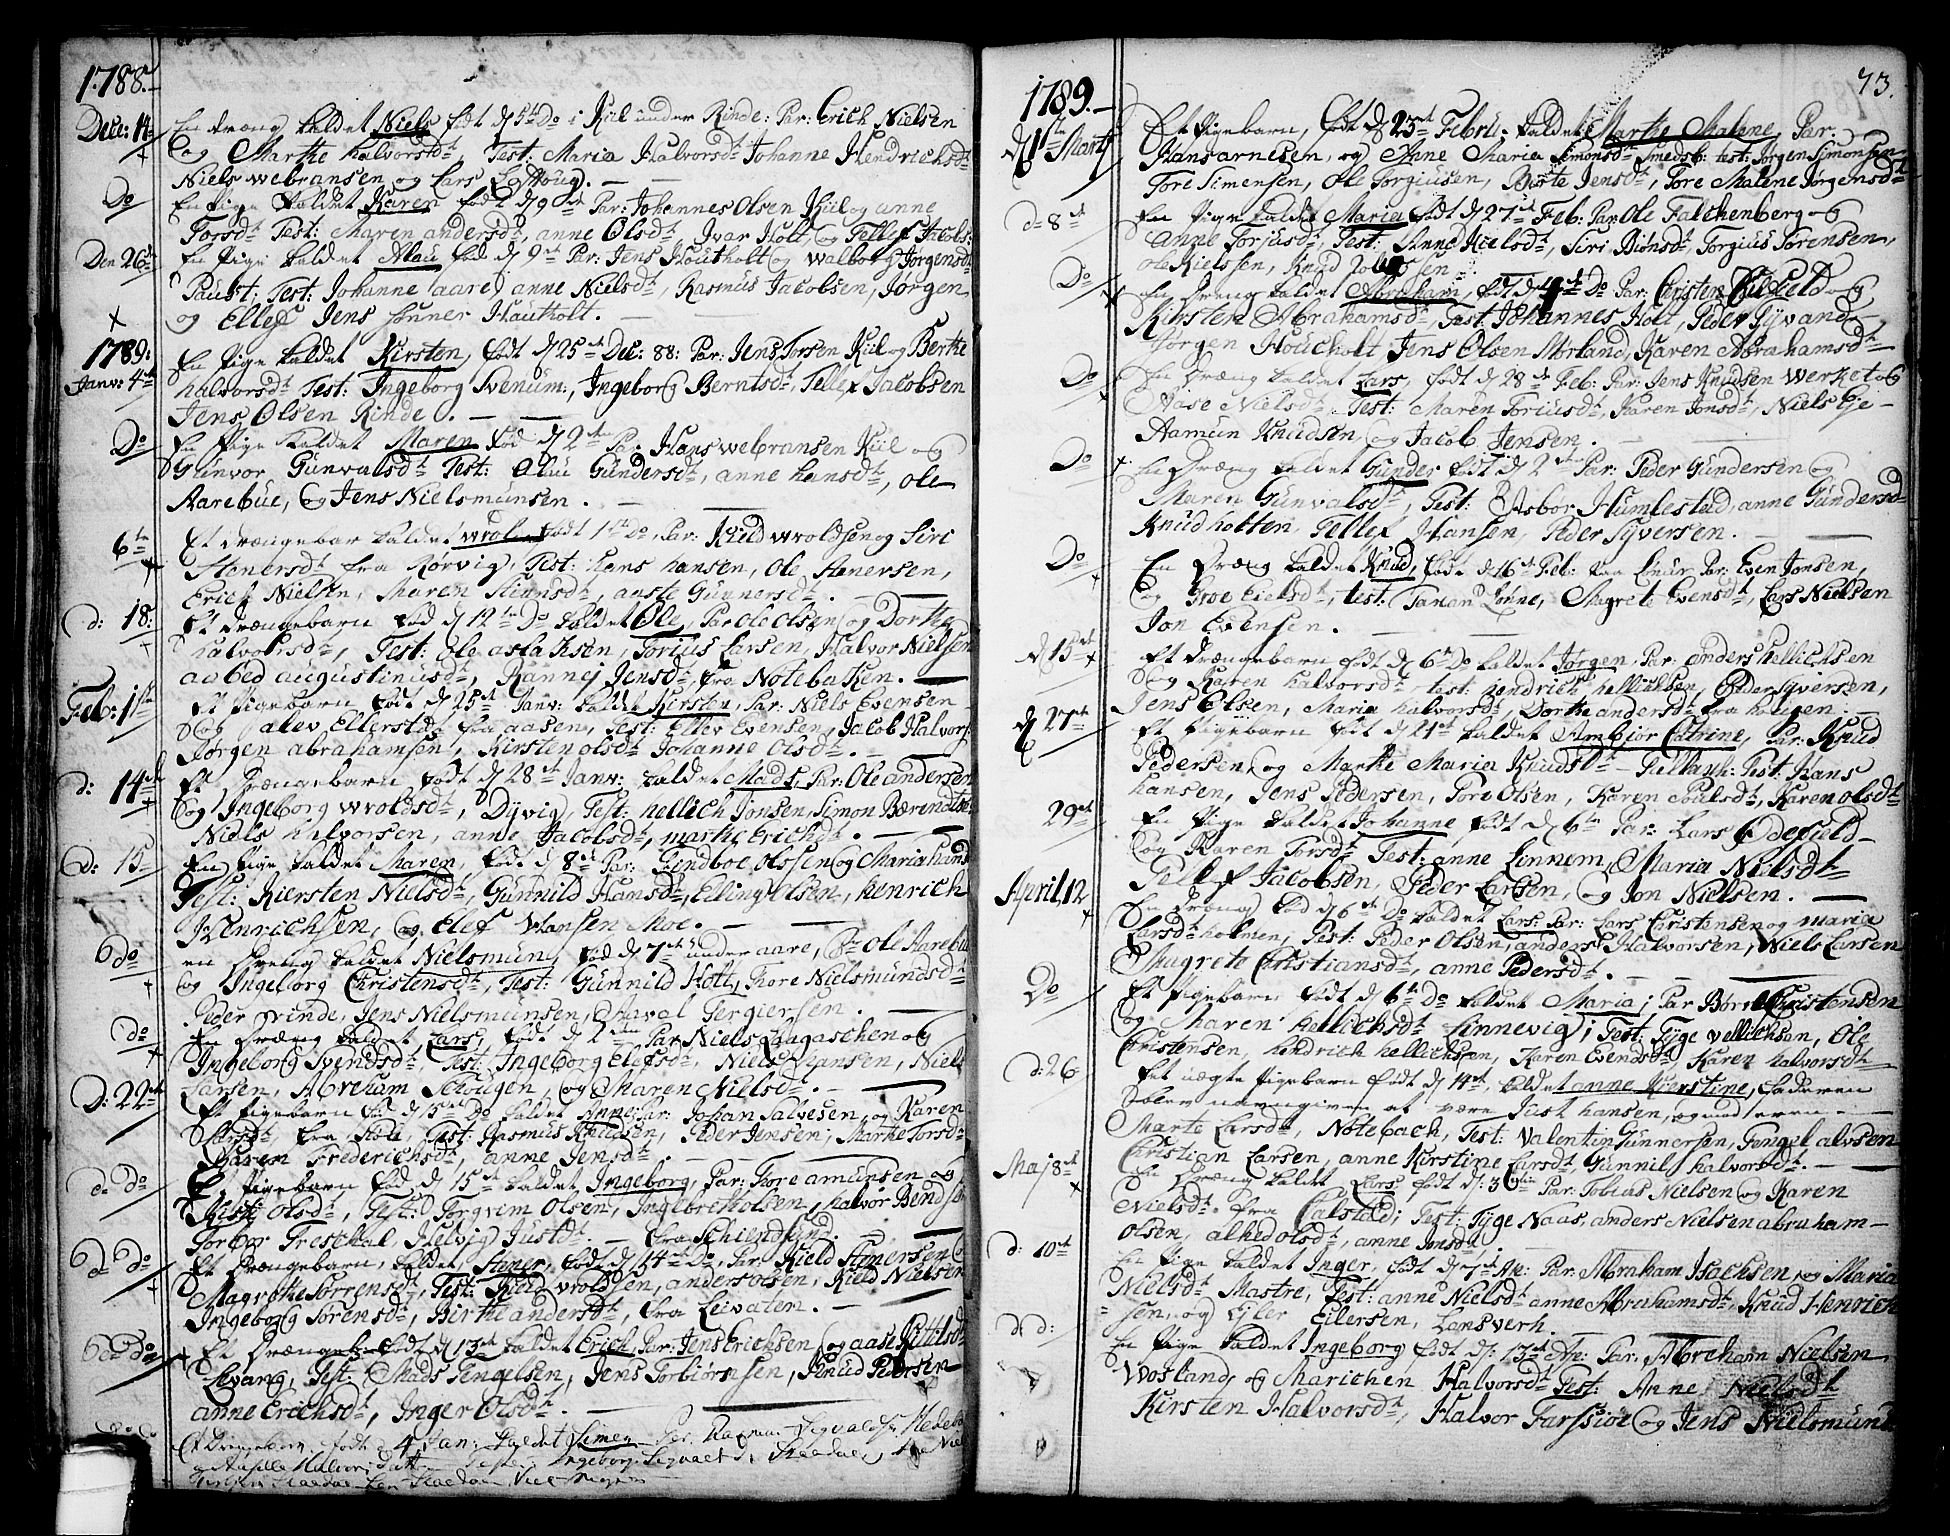 1788.
Dece: 14
En dræng kaldet Niels født d 5te Do i Kiil under Rinde: Par: Erich Nielsen
og Marthe halvorsdt, Test: Maria Halvorsdt Johanne Hendrichsdt
Niels webransen og Lars
Do
En Pige kaldet Karen født d 9de Par: Johannes Olsen Kiil og anne
Torsdt Test: Maren andersdt, anne Olsdt Ivar Holt, og Tellef Jacobs:
Den 26de
En Pige kaldet Alau fød d 9de Par: Jens Houtholt og walborg Jørgensdt
Paust, Test: Johanne aare, anne Nielsdt, Rasmus Jacobsen, Jørgen
og Ellef Jens sønner Hautholt.
1789:
Janv: 4de
En Pige kaldet Kirsten, født d 25de Dec: 88: Par: Jens Torsen Kiil og Berthe
halvorsdt Test: Ingeborg Svenum, Ingeborg Berntsdt, Tellef Jacobsen
Jens Olsen Rinde.
Do
En Pige kaldet Maren fød d 2den Par: Hans webransen Kiil og
Gunvor Gunvalsdt Test: Alau Gundersdt, anne hansdt, ole
Aarebue, og Jens Nielsmunsen.
6te
Et drængebar kaldet wrol født 1ste Do, Par: Knud wroldsen og Siri
Stenersdt fra Rørvig, Test: hans hansen, Ole Stenersen,
Erich Nielsen, Maren Stennsdt, anste Gunnersdt.
d: 18
Et drængebarn fød d 12te Do kaldet Ole, Par Ole Olsen og Dorthe
halvorsdt, Test: ole aslaksen, Torius Larsen, Halvor Nielsen
aabed augustinusdt, Rannej Jensdt, fra Notebaken.
Feb: 1ste
Et Pigebarn født d 25de Janv: kaldet Kirsten, Par: Niels Evensen
og alev Ellersdt fra aasen, Test: Ellev Evensen, Jacob Halvors:
Jørgen abrahamsen, Kirsten olsdt Johanne Olsdt.
d: 14de
Et Drængebarn født d 28de Janv: kaldet Mads, Par: Ole andersen
og Ingeborg wroldsdt, Dyvig, Test: hellich Jonsen, Simon Bærendtse
Niels halvorsen, anne Jacobsdt, marthe Erichdt.
d: 15
En Pige kaldet Maren, født d 8de Par: Gundboe olssen og Maria hans
Test: Kiersten Nielsdt, Gunnild Hansdt, Elling Olsen, henrich
Henrichsen, og Elef Hansen Moe.
do
en dreng kaldet Nielsmun, fød d 7de under aare, Par Ole Aarebu
og Ingeborg Christensdt, Test: Gunnild Holt, Thore Nielsmundsdt
Peder Rinde, Jens Nielsmunsen, Tergiersen.
do
En Dræng kaldet Lars, født d 2den Par Niels Laagaschen og
Ingeborg Svendsdt, Test: Ingeborg Elefsdt, Niels Hansen, Niels
Larsen, Abreham Schougen, og Maren Nielsdt.
D: 22de
Et Pigebarn fød d 15de Do kaldet Anne, Par: Johan Salvesen, og Karen
Larsdt fra Stole, Test: Rasmus Knudsen, Peder Jensen, Marthe Torsdt
Karen Frederichsdt, anne Jensdt.
d: do
Et Pigebarn fød d 15de kaldet Ingeborg, Par: Tore amunsen og
Kisti olsdt, Test: Torgrim Olsen, Ingebreth Olsen, halvor Bendsen
Torbor Treschal, Helvig Justdt. fra
d do
Et Drængebarn, kaldet, Stener, født d 14de Do, Par: Kield Stenersen og
Magrethe Sørrensdt, Test: Kield wroldsen, anders olsen, Kield Nielsen
Ingeborg Sørensdt, Birthe andersdt, fra Leivaten.
do
Et Drængeb: født d 13de kaldet Erich, Par: Jens Erichsen, og aase Kittilsdt
Levang, Test: Mads Tengelsen, Jens Torbiørnsen, Knud Pedersen
anne Erichsdt, Inger Olsdt.
Et Drengebarn født 4 Jan: kaldet Simen Par. Rasmus Sigvaldsen
Aasille Halvorsdatt Test: Ingeborg Sigvaldsd
73.
1789.
d 1ste Martj
Et Pigebarn, født d 23de Febru: kaldet Marthe Malene, Par:
Hans arnesen, og Anne Maria Simonsdt Smedsb: test: Jørgen Simonsen
Tore Simensen, Ole Torgiusen, Birte Jensdt, Tore Malene Jørgensdt
d: 8de
En Pige kaldet Maria født d 27de Feb: Par Ole Falchenberg og
anne Torjusdt, Test: Anne Kielsdt, Siri Biønsdt, Torgius Sørensen,
ole Kielssen, Knud
Do
En Dreng kaldet Abraham, født d 4de Do Par: Christen og
Kirsten Abrahamsdt, Test: Johannes Holt, Peder Syvand
Jørgen Houcholt Jens Olsen Morland, Karen Abrahamsdt
Do
En Dræng kaldet Lars, født d 28de Feb: Par: Jens Knudsen werket og
Aase Nielsdt. Test: Maren Toriusdt, Karen Jonsdt, Niels Eje-
Aamun Knudsen, og Jacob Jensen.
Do
En Dræng kaldet Gunder født d 2de Par: Peder Gundersen og
Maren Gunvalsdt, Test: Asbor Humlestad, anne Gundersd
Knud holten, Tellef Hansen, Peder Syversen.
Do
En Dræng kaldet Knud, født d 16de Feb: Par: Even Jonsen,
og Groe Eielsdt, test: Tanan Lonne, Magrete Evensdt, Lars Nielsen
Jon Evensen.
d 15de
Et Drængebarn født d 6te Do kaldet Jørgen, Par: anders hellichsen
og Karen halvorsdt test: hendrich hellichsen, Peder Syversen,
Jens Elsen, Maria halvorsdt, Dorthe andersdt fra hougen.
d 27de
Et Pigebarn født d 21de kaldet Ambjør Catrine, Par: Knud
Pedersen, og Marthe Maria Knudsdt Test: Hans
hansen, Jens Pedersen, Tore Olsen, Karen Poulsdt, Karen olsdt
29de
En Pige kaldet Johanne født d 6te Par: Lars Ødefield
og Karen Torsdt Test: anne Lennem, Maria Nielsdt
Tellef Jacobsen, Peder Larsen, og Jon Nielsen.
April 12
En Dræng fød d 6te Do kaldet Lars, Par: Lars Christensen og maria
Larsdt holmen, Test: Peder Olsen, anders Halvorsen, Niels Larsen
Magrete Christiansdt, anne Pedersdt.
Do
Et Pigebarn født d 6te Do kaldet Maria; Par Børre Christensen
og Maren hellichsdt Sinnevig; Test: Tyge vellichsen, Ole
Christensen, hendrich hellichsen, Karen Evensdt Karen halvorsdt
d: 26
Et uægte Pigebarn født d 14de, kaldet anne Kierstine, faderen
blev navngiven at være Just hansen, og moderen
Marte Larsdt, Notebach, Test: Valentin Gunnersen, Tengel alvsen
Christian Larsen, anne Kirstine Larsdt, Gunnil halvorsdt.
Maj 8de
En Dræng kaldet Lars født d: 3 Par: Tobias Nielsen og Karen
Nielsdt. fra Calstad; Test: Tyge Naas, anders Nielsen abraham
olsen, alhed olsdt, anne Jonsdt.
d: 10de
En Pige kaldet Inger, født d 7de Ap: Par: Abraham Isachsen, og Maria
Nielsdt Mastre, Test: anne Nielsdt anne Abrahamsdt, Knud Henrich
sen, og Ejler Eilersen, Lansverk.
d d:
En Pige kaldet Ingeborg født d: 13de Ap: Par: Abreham Nielsen
Vosland, og Marichen Halvorsdt Test: Anne Nielsdt
Kirsten Halvorsdt, Halvor Farssioe og Jens Nielsmunds